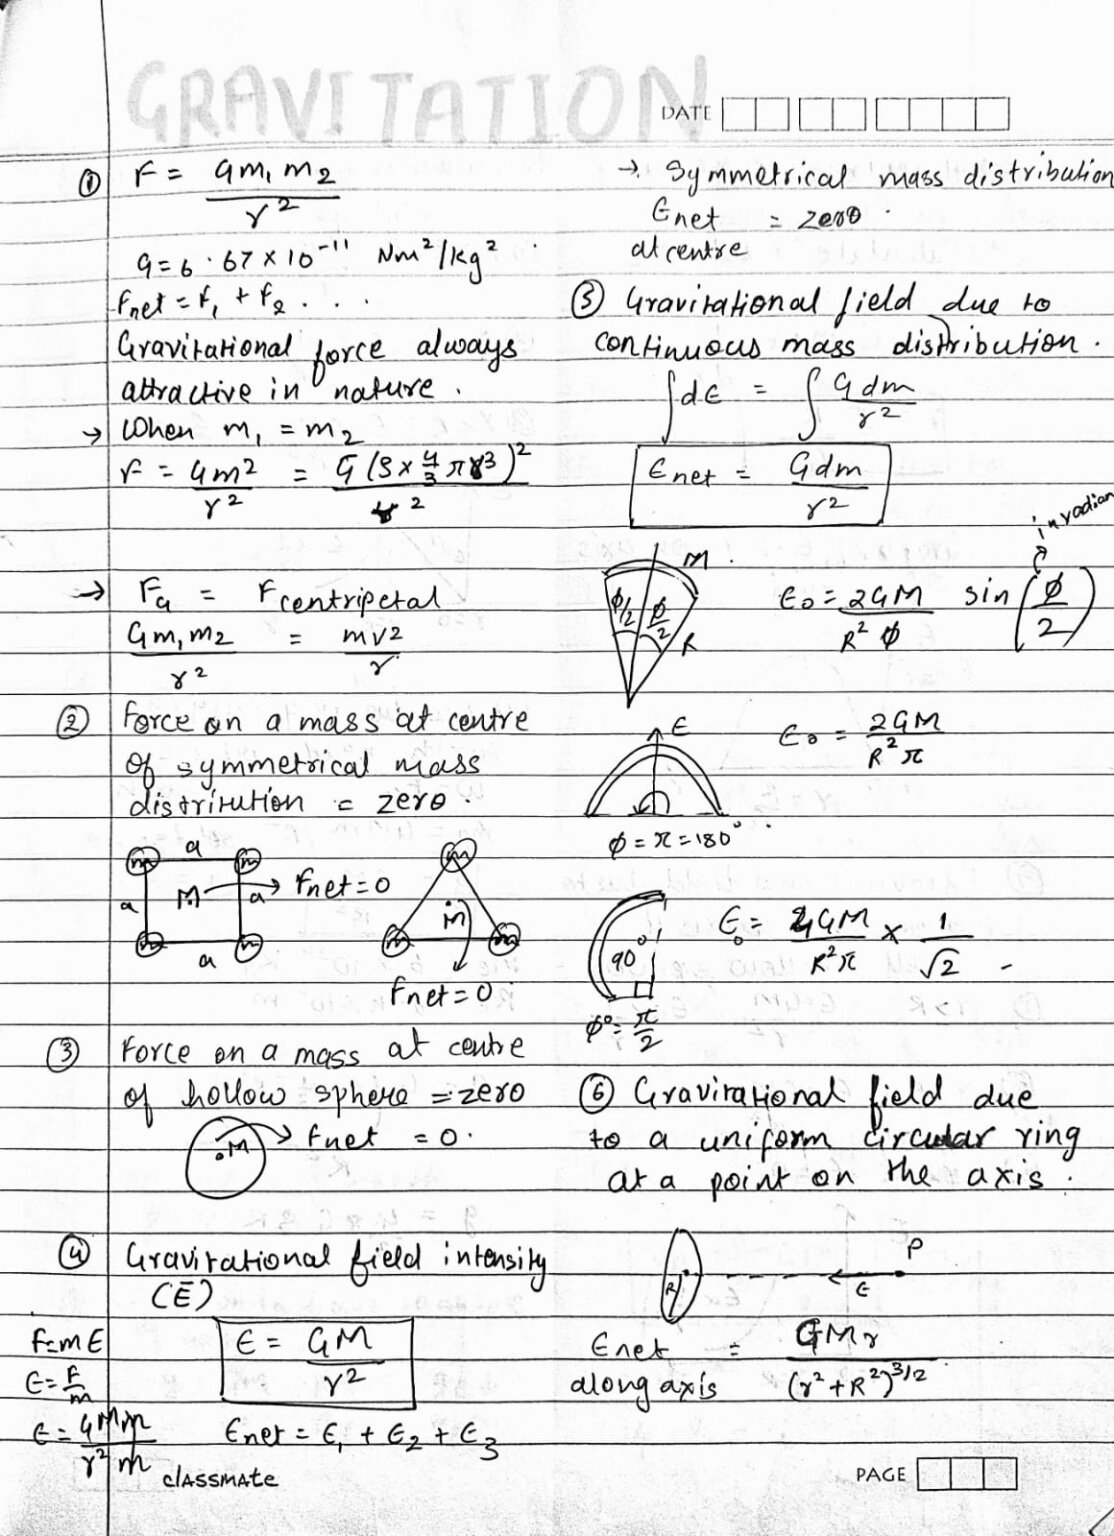 GRAVITATION
DATE
① F = Gm₁m₂ / r²
G = 6.67 × 10⁻¹¹ Nm²/kg²
Fnet = F₁ + F₂ . . .
Gravitational force always
attractive in nature.
→ When m₁ = m₂
F = Gm² / r² = G(ρ × 4/3 πr³)² / r²
→ FG = Fcentripetal
Gm₁m₂ / r² = mv² / r
② Force on a mass at centre
of symmetrical mass
distribution = zero.
m a m
a M a → Fnet = 0
m a m
m
M
m m
Fnet = 0
③ Force on a mass at centre
of hollow sphere = zero
M → Fnet = 0.
④ Gravitational field intensity
(E̅)
F = mE
E = F/m
E = GMm / r²m
E = GM / r²
Enet = E₁ + E₂ + E₃
classmate
→ Symmetrical mass distribution
Enet = zero.
at centre
⑤ Gravitational field due to
continuous mass distribution.
∫dE = ∫ Gdm / r²
Enet = Gdm / r²
in radian
M
ϕ/2 ϕ/2
R
E₀ = 2GM / R²ϕ sin(ϕ/2)
E
E₀ = 2GM / R²π
ϕ = π = 180°
90°
E₀ = 4GM / R²π × 1/√2
ϕ° = π/2
⑥ Gravitational field due
to a uniform circular ring
at a point on the axis.
R E P
Enet = GMr / (r² + R²)^3/2
along axis
PAGE